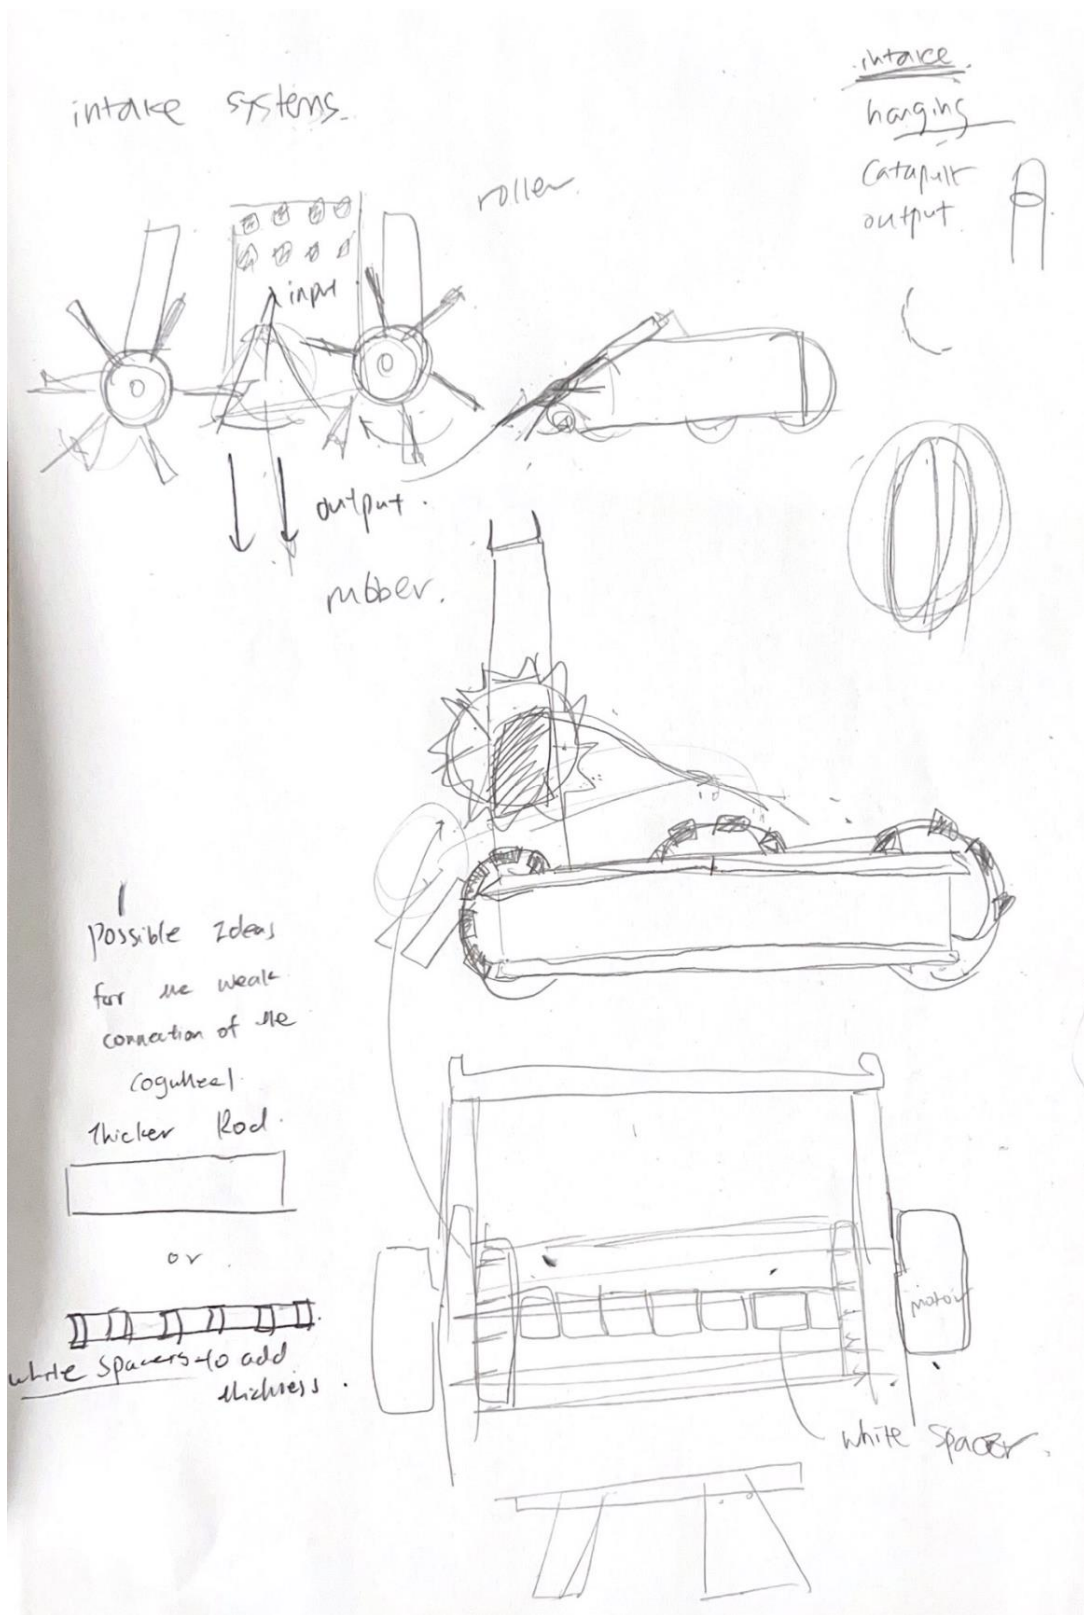 intake systems.
roller
intake
hanging
Catapult
output
input
output.
rubber.
Possible Ideas
for the weak
connection of the
cogwheel
Thicker Rod.
or
white spacers to add
thickness.
motor
white spacer.